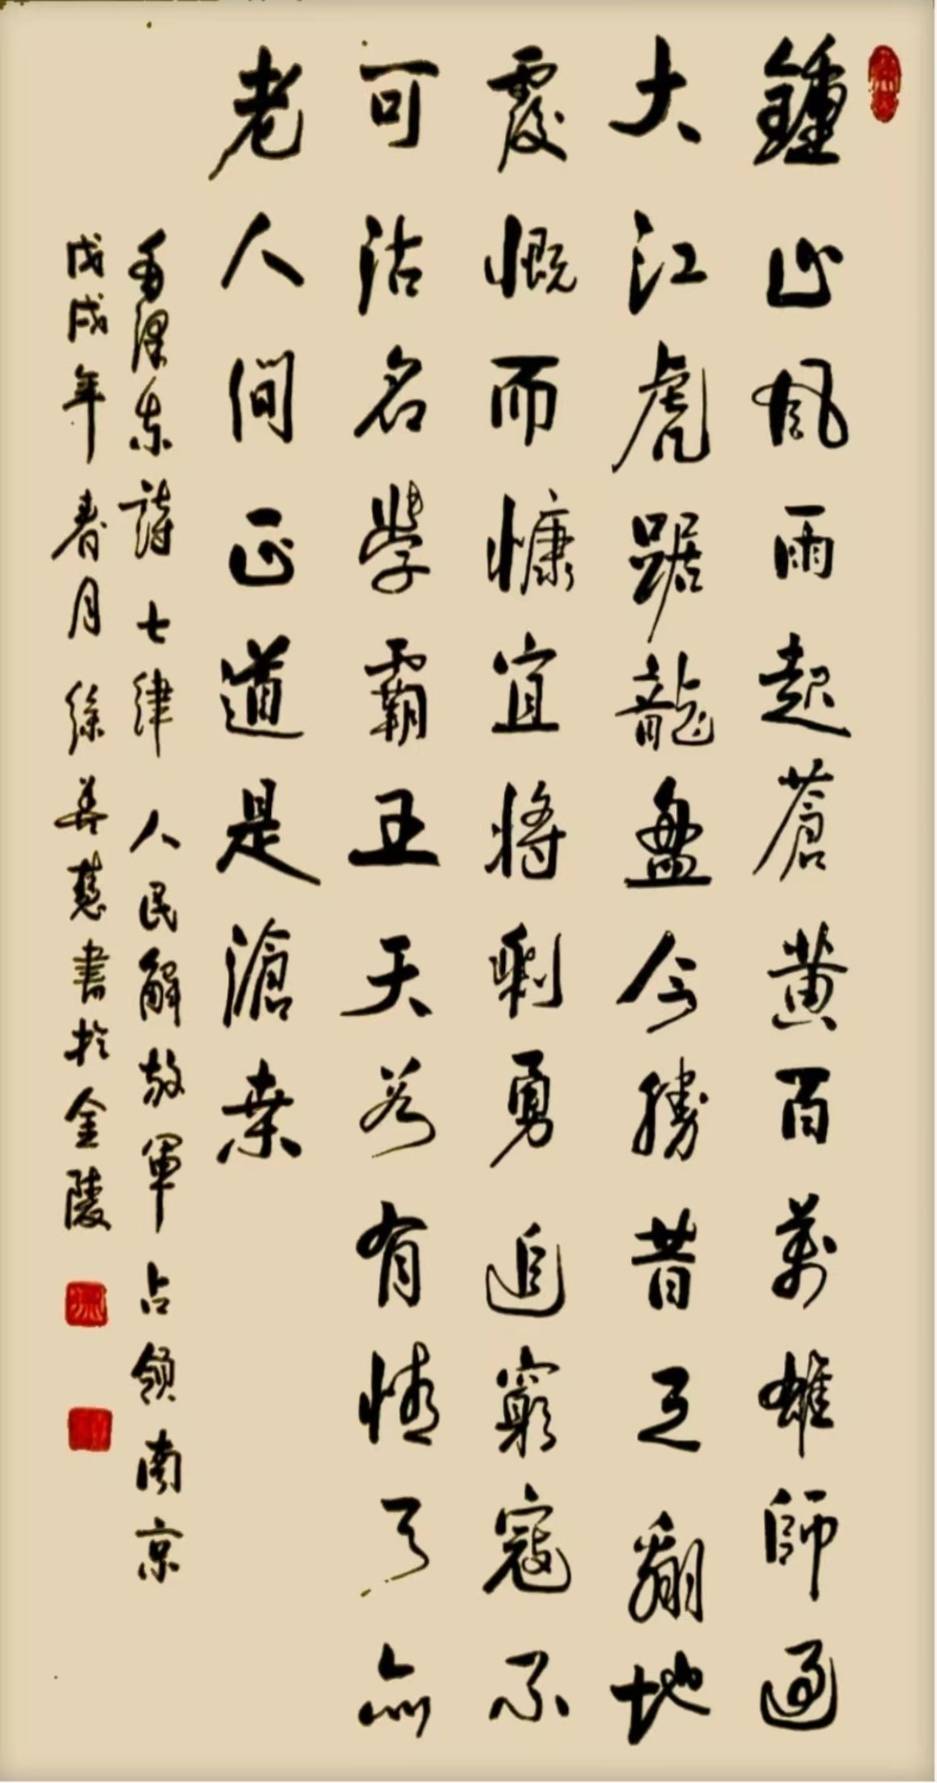 鍾山風雨起蒼黃百萬雄師過
大江虎踞龍盤今勝昔天翻地
覆慨而慷宜將剩勇追窮寇不
可沽名學霸王天若有情天亦
老人間正道是滄桑
毛澤東詩 七律 人民解放軍占領南京
戊戌年春月 徐慧書於金陵